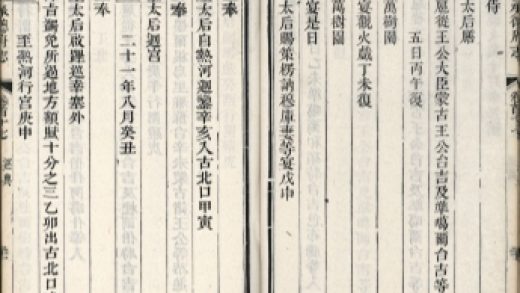 承德府志
侍
太后膳
扈從王公大臣蒙古王公台吉及準噶爾台吉等
五日丙午復
萬樹園
宴觀火戲丁未復
萬樹園
宴是日
太后賜策楞訥穆庫妻等宴戊申
奉
太后自熱河迴鑾辛亥入古北口甲寅
奉
太后迴宮
二十一年八月癸丑
太后啟蹕巡幸塞外
吉蠲免所過地方額賦十分之三乙卯出古北口
至熱河行宮庚申
承德府志